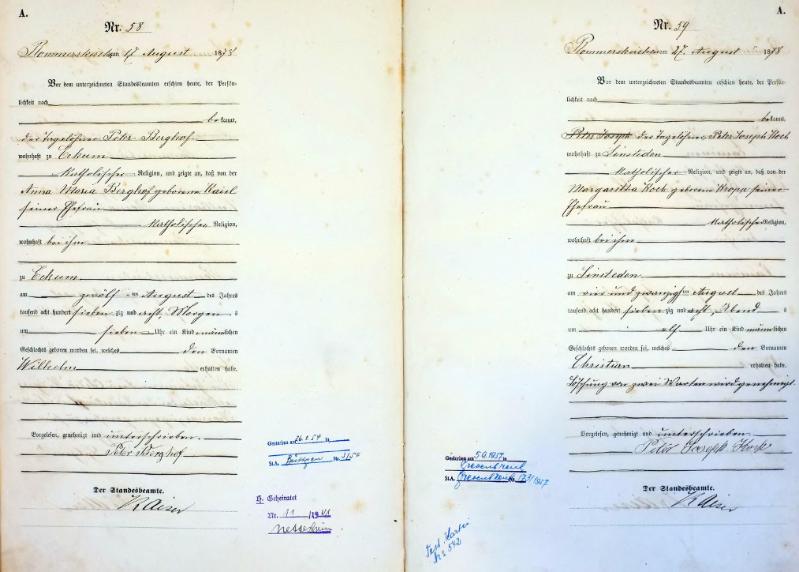 A.
Nr. 58
Rommerskirchen 17 August 1878
Vor dem unterzeichneten Standesbeamten erschien heute, der Persön-
lichkeit nach
bekannt,
der Tagelöhner Peter Berghof
wohnhaft zu Eckum
katholischer Religion, und zeigte an, daß von der
Anna Maria Berghof geborene
seiner Ehefrau
katholischer Religion,
wohnhaft bei ihm
zu Eckum
am zwölf ten August des Jahres
tausend acht hundert sieben zig und acht, Morgens
um sieben Uhr ein Kind männlichen
Geschlechts geboren worden sei, welches den Vornamen
Wilhelm
erhalten habe.
Vorgelesen, genehmigt und unterschrieben.
Peter Berghof
Der Standesbeamte.
Kaiser
Gestorben am 26.1.54 in
StA. Nr. 31/54
H. Geheiratet
Nr. 11
Nettesheim
A.
Nr. 59
Rommerskirchen 27. August 1878
Vor dem unterzeichneten Standesbeamten erschien heute, der Persön-
lichkeit nach
bekannt,
Peter Joseph der Tagelöhner Peter Joseph Koch
wohnhaft zu Sinsteden
katholischer Religion, und zeigte an, daß von der
Margaretha Koch geborene seiner
Ehefrau
katholischer Religion,
wohnhaft bei ihm
zu Sinsteden
am vier und zwanzigsten August des Jahres
tausend acht hundert sieben zig und acht, Abends
um elf Uhr ein Kind männlichen
Geschlechts geboren worden sei, welches den Vornamen
Christian
erhalten habe.
Löschung von zwei Worten wird genehmigt.
Vorgelesen, genehmigt und unterschrieben
Peter Joseph Koch
Der Standesbeamte.
Kaiser
Gestorben am 5.9.1957 in
Grevenbroich
StA. Grevenbroich Nr.